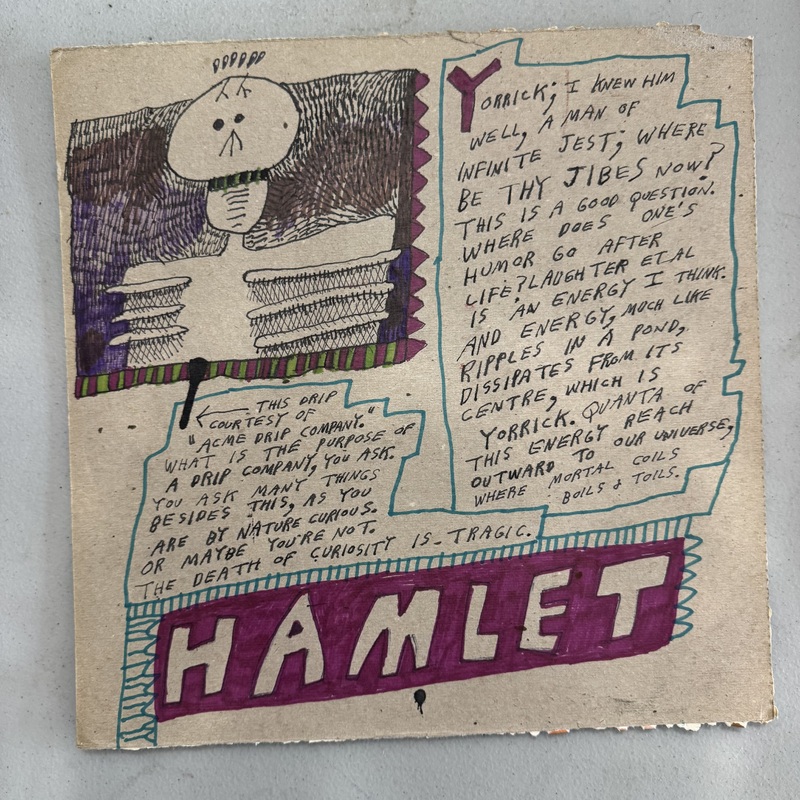 YORRICK; I KNEW HIM
WELL, A MAN OF
INFINITE JEST; WHERE
BE THY JIBES NOW?
THIS IS A GOOD QUESTION.
WHERE DOES ONE'S
HUMOR GO AFTER
LIFE? LAUGHTER ET AL
IS AN ENERGY I THINK.
AND ENERGY, MUCH LIKE
RIPPLES IN A POND,
DISSIPATES FROM ITS
CENTRE, WHICH IS
YORRICK. QUANTA OF
THIS ENERGY REACH
OUTWARD TO OUR UNIVERSE,
WHERE MORTAL COILS
BOILS & TOILS.
THIS DRIP
COURTESY OF
"ACME DRIP COMPANY."
WHAT IS THE PURPOSE OF
A DRIP COMPANY, YOU ASK.
YOU ASK MANY THINGS
BESIDES THIS, AS YOU
ARE BY NATURE CURIOUS.
OR MAYBE YOU'RE NOT.
THE DEATH OF CURIOSITY IS TRAGIC.
HAMLET